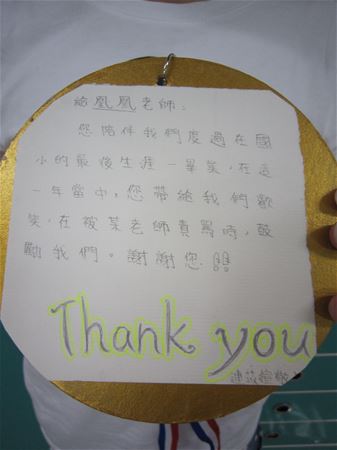 給凰凰老師：
您陪伴我們度過在國
小的最後生涯－畢業，在這
一年當中，您帶給我們歡
笑，在被某老師責罵時，鼓
勵我們。謝謝您!!
Thank you